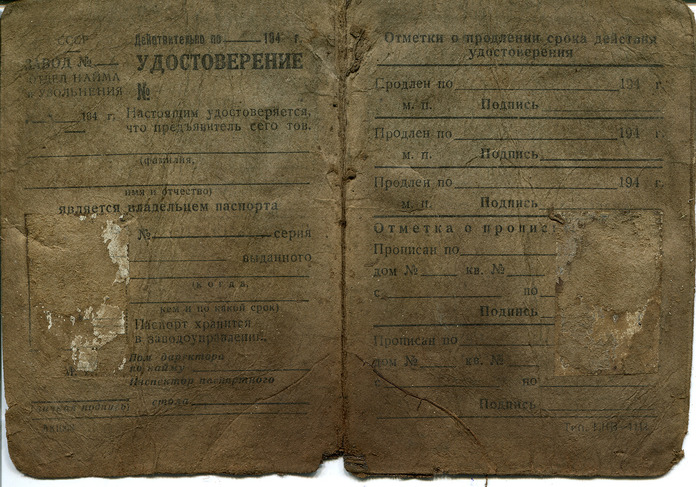 СССР
ЗАВОД №
ОТДЕЛ НАЙМА
и УВОЛЬНЕНИЯ
194 г.
Действительно по 194 г.
УДОСТОВЕРЕНИЕ
№
Настоящим удостоверяется,
что предъявитель сего тов.
(фамилия,
имя и отчество)
является владельцем паспорта
№ серия
выданного
(когда,
кем и по какой срок)
Паспорт хранится
в заводоуправлении.
М.
Пом. директора
по найму
Инспектор паспортного
стола
(личная подпись)
Отметки о продлении срока действия
удостоверения
Продлен по 194 г.
м. п. Подпись
Продлен по 194 г.
м. п. Подпись
Продлен по 194 г.
м. п. Подпись
Отметка о пропис
Прописан по
дом № кв. №
с по
Подпись
Прописан по
дом № кв. №
с по
Подпись
Тип.